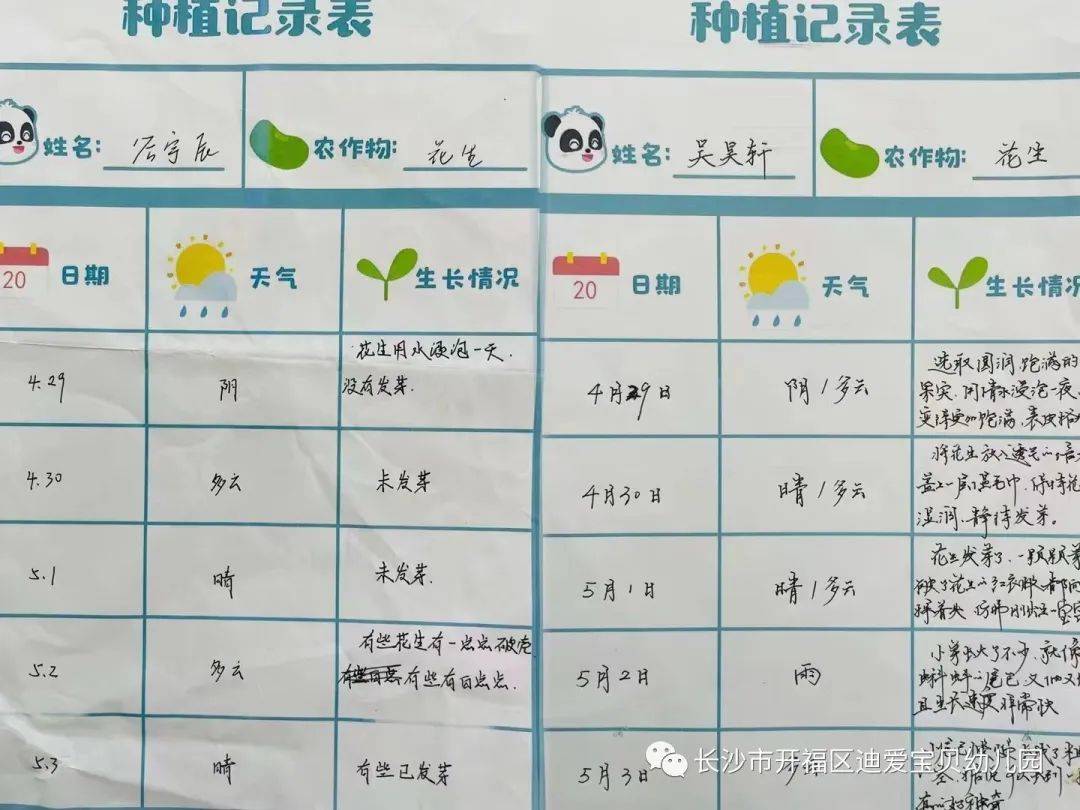 种植记录表
姓名:
宇辰
农作物: 花生
20 日期
天气
生长情况
4.29
阴
花生用水浸泡一天.
没有发芽.
4.30
多云
未发芽
5.1
晴
未发芽.
5.2
多云
有些花生有一点点破壳
有些有白点点.
5.3
晴
有些已发芽
种植记录表
姓名: 吴昊轩
农作物: 花生
20 日期
天气
生长情况
4月29日
阴/多云
选取圆润,饱满的
果实,用清水浸泡一夜,
饱满,表皮
4月30日
晴/多云
将花生放入透气
盖上一层湿毛巾,保持花
湿润,静待发芽。
5月1日
晴/多云
花生发芽了,一颗颗芽
破了花生的红衣
5月2日
雨
小芽长大了不少,就像
蝌蚪的尾巴,又
且生长速度非常快
5月3日
长沙市开福区迪爱宝贝幼儿园